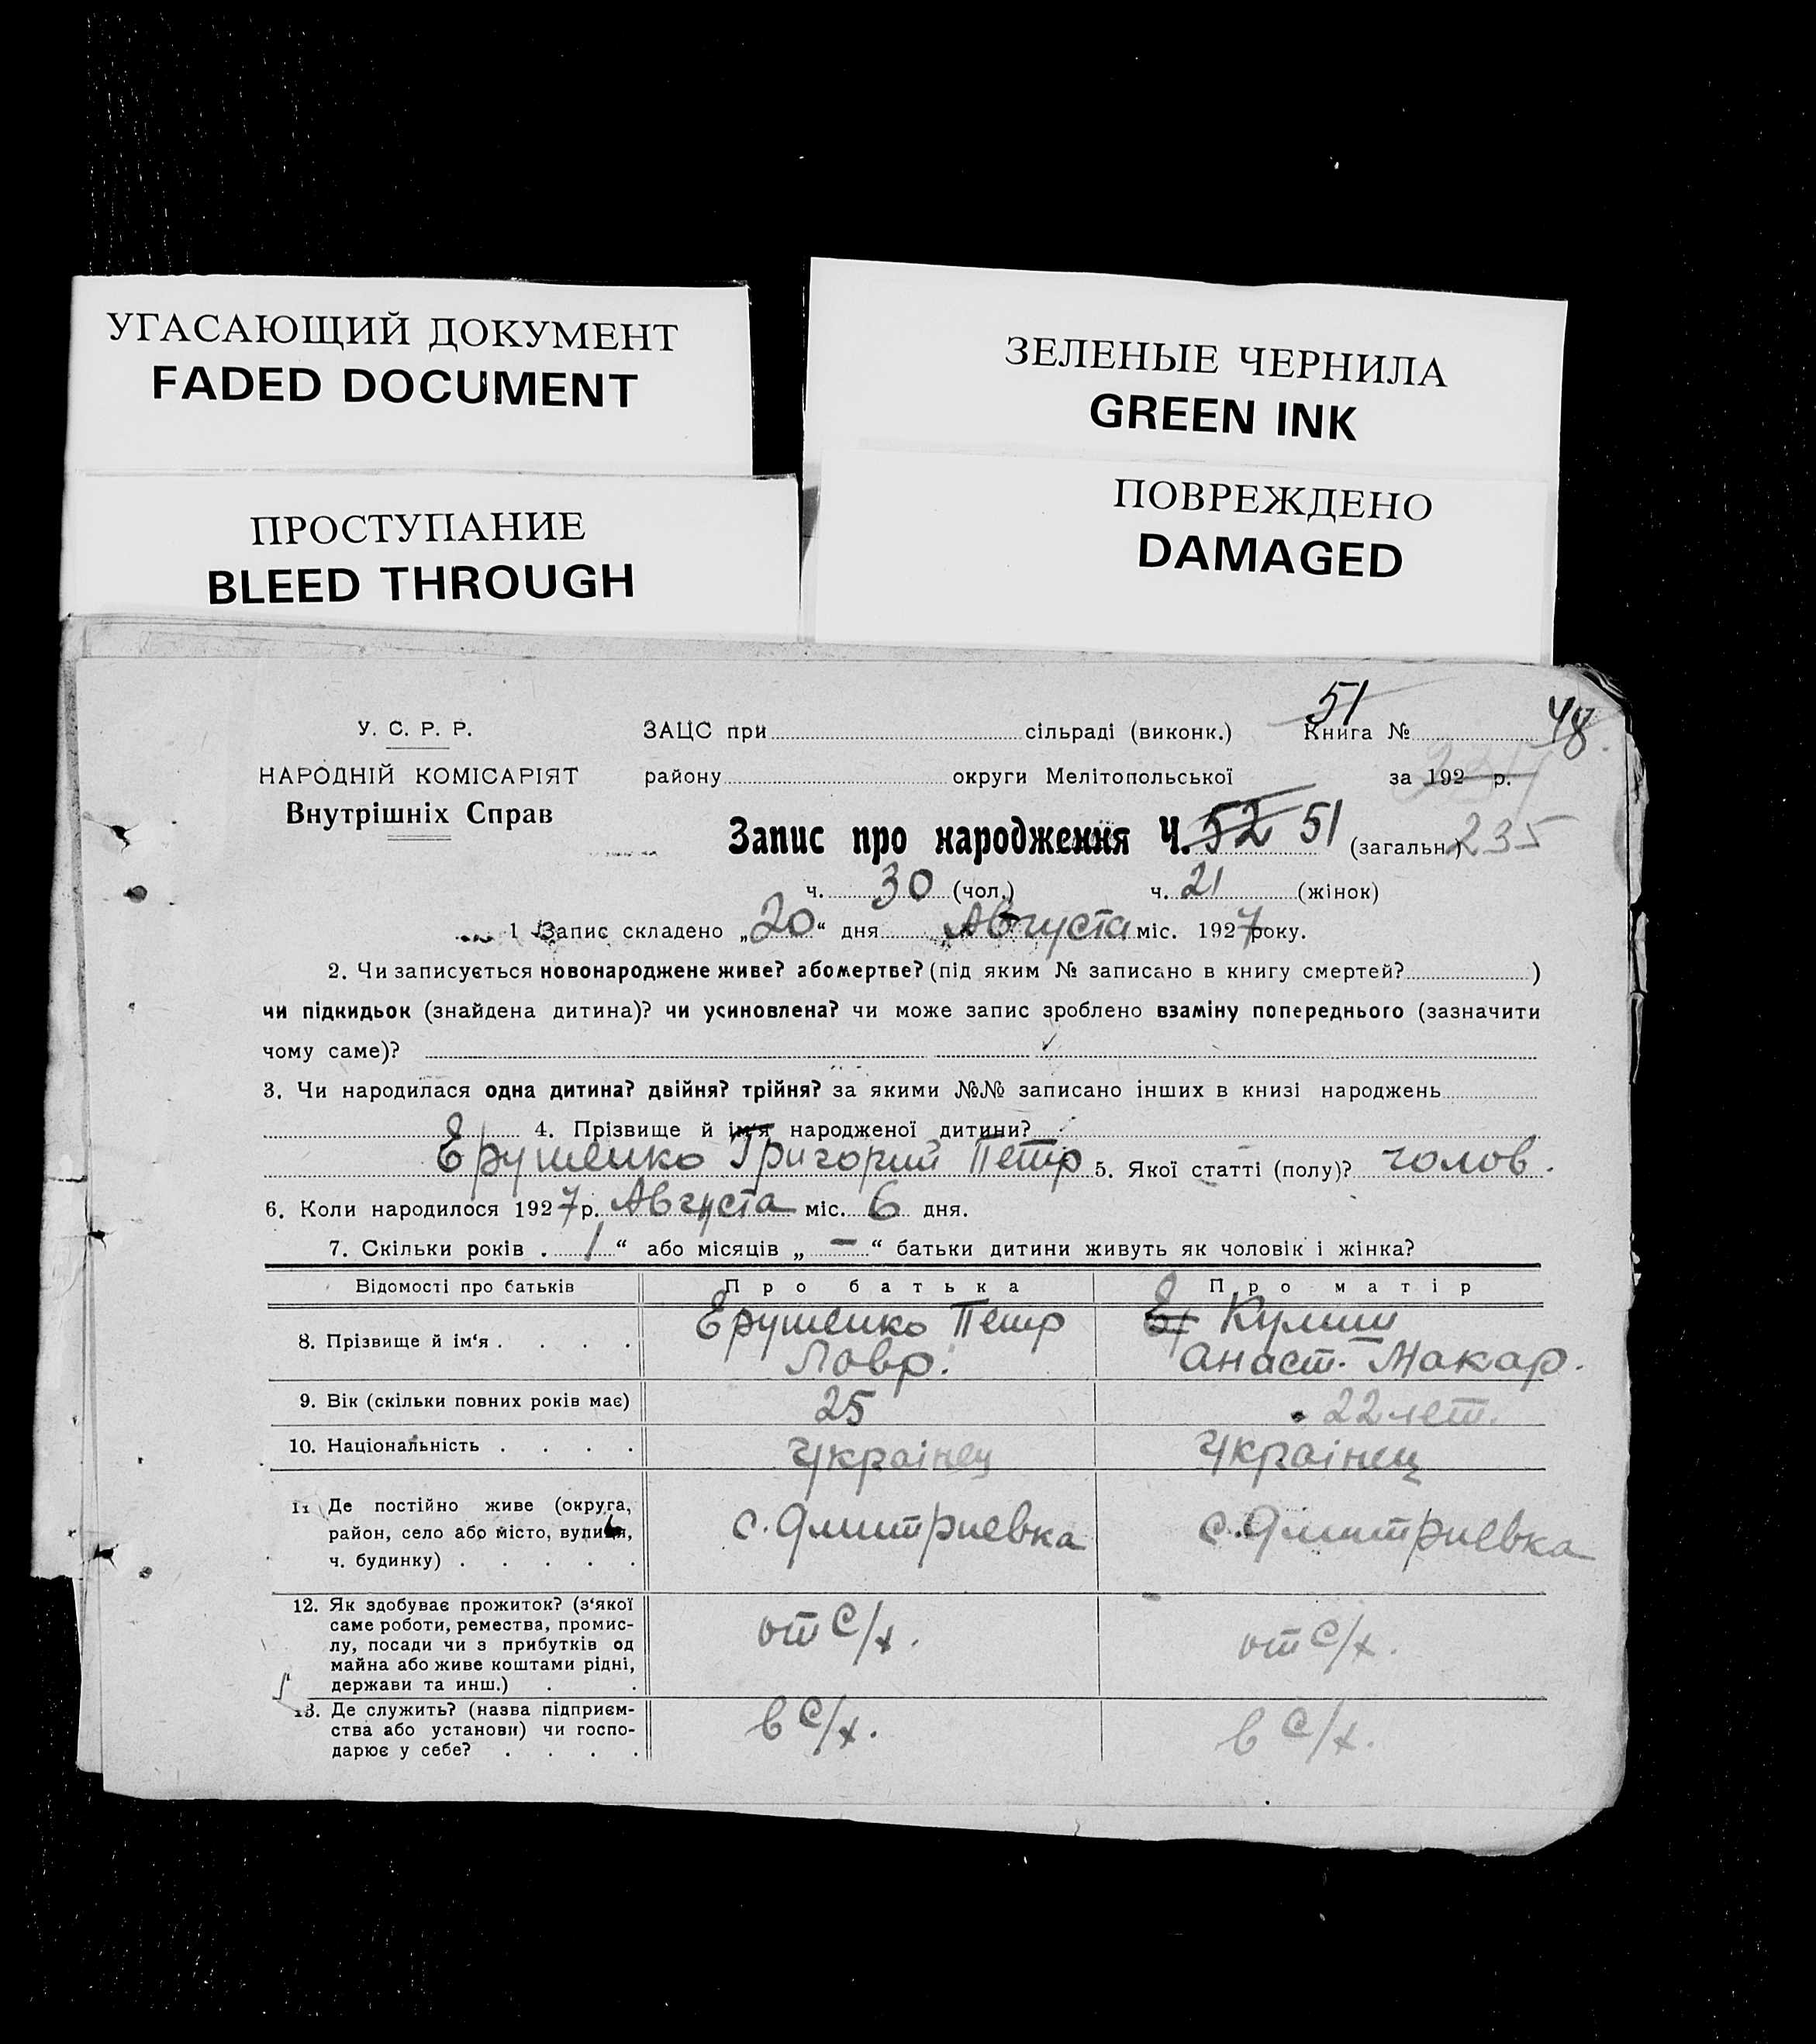 УГАСАЮЩИЙ ДОКУМЕНТ
FADED DOCUMENT
ЗЕЛЕНЫЕ ЧЕРНИЛА
GREEN INK
ПРОСТУПАНИЕ
BLEED THROUGH
ПОВРЕЖДЕНО
DAMAGED
51 48
У. С. Р. Р. ЗАЦС при сільраді (виконк.) Книга №
НАРОДНІЙ КОМІСАРІЯТ району округи Мелітопольської за 192 р.
Внутрішніх Справ
Запис про народження Ч. 52 51 (загальн.) 235
ч. 30 (чол.) ч. 21 (жінок)
1 Запис складено „20“ дня Августа міс. 1927 року.
2. Чи записується новонароджене живе? або мертве? (під яким № записано в книгу смертей? )
чи підкидьок (знайдена дитина)? чи усиновлена? чи може запис зроблено взаміну попереднього (зазначити
чому саме)?
3. Чи народилася одна дитина? двійня? трійня? за якими №№ записано інших в книзі народжень
4. Прізвище й ім‘я народженої дитини?
Ерушенко Григорий Петр 5. Якої статті (полу)? чолов.
6. Коли народилося 1927 р. Августа міс. 6 дня.
7. Скільки років 1 “ або місяців „ — “ батьки дитини живуть як чоловік і жінка?
Відомості про батьків Про батька Про матір
8. Прізвище й ім‘я . . . . Ерушенко Петр Лавр. Ер Кулиш Анаст. Макар.
9. Вік (скільки повних років має) 25 22 лет.
10. Національність . . . . Українец Українец
11 Де постійно живе (округа,
район, село або місто, вулиця, с. Дмитриевка с. Дмитриевка
ч. будинку) . . . . .
12. Як здобуває прожиток? (з‘якої
саме роботи, ремества, промис-
лу, посади чи з прибутків од от с/х. от с/х.
майна або живе коштами рідні,
держави та инш.) . .
13. Де служить? (назва підприєм-
ства або установи) чи госпо- в с/х. в с/х.
дарює у себе? . . . .